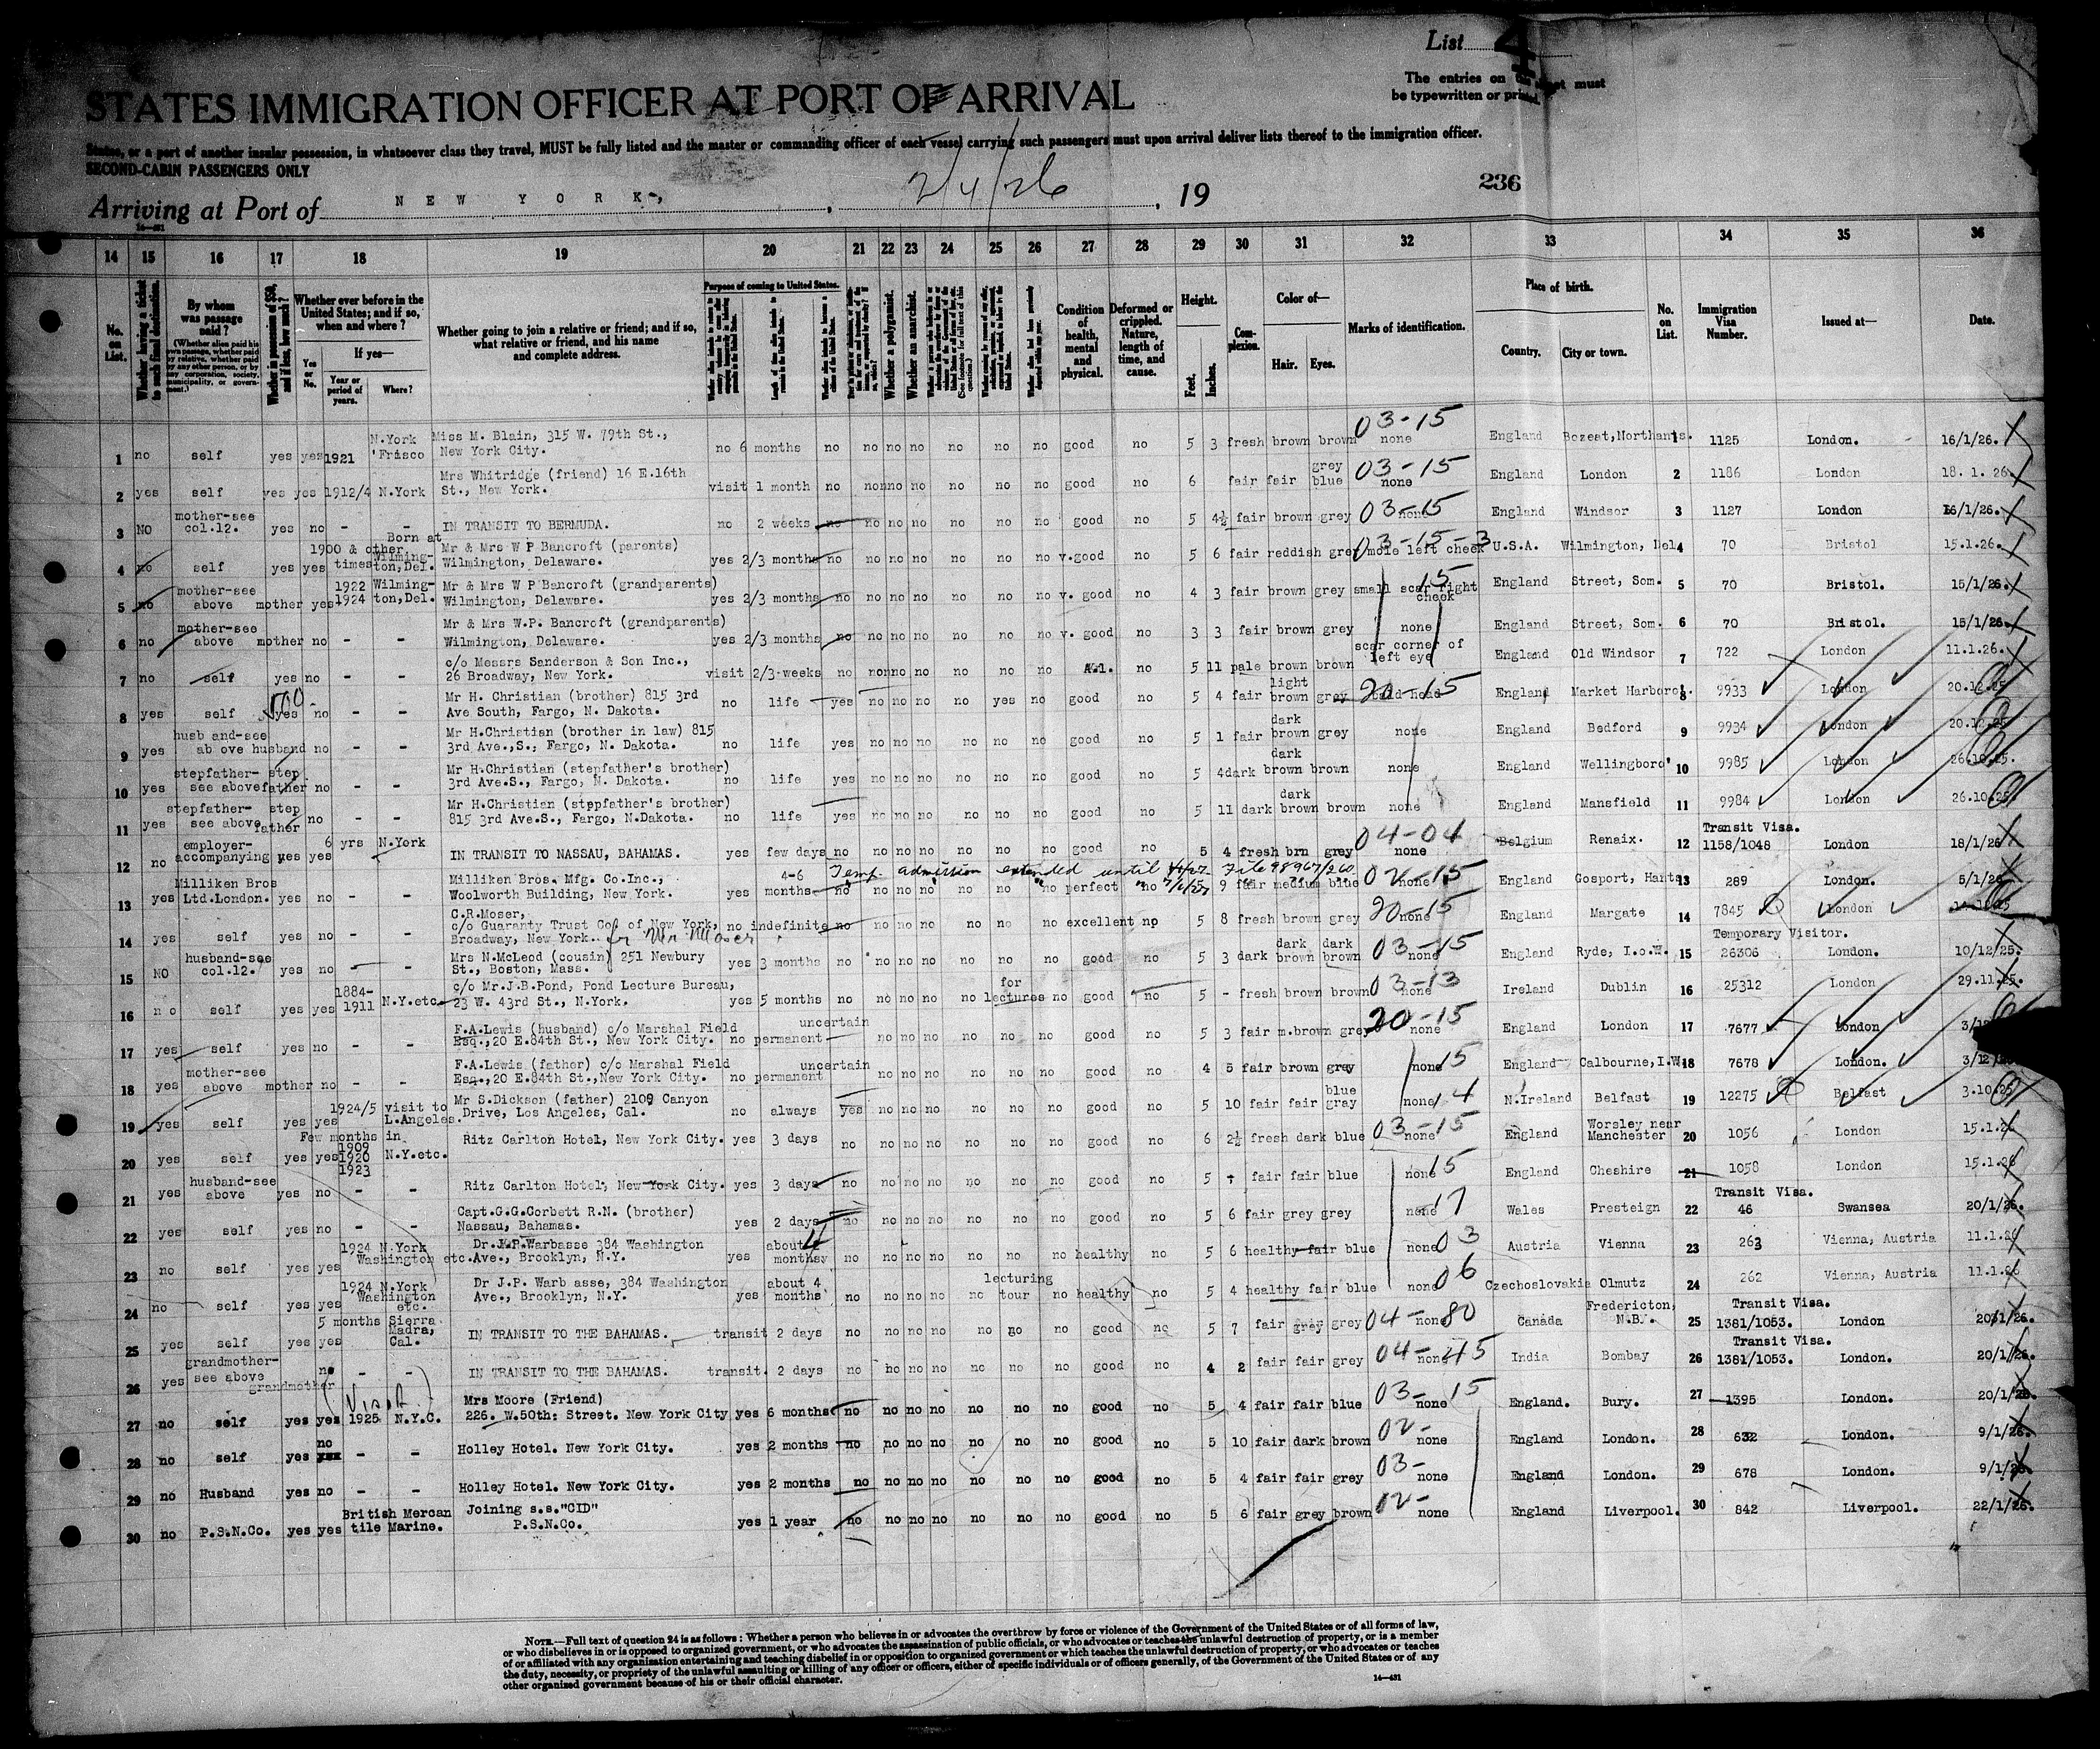 List 4
The entries on this sheet must
be typewritten or printed.
STATES IMMIGRATION OFFICER AT PORT OF ARRIVAL
States, or a port of another insular possession, in whatsoever class they travel, MUST be fully listed and the master or commanding officer of each vessel carrying such passengers must upon arrival deliver lists thereof to the immigration officer.
SECOND-CABIN PASSENGERS ONLY
236
Arriving at Port of NEW YORK, 2/4/26, 19
14 15 16 17 18 19 20 21 22 23 24 25 26 27 28 29 30 31 32 33 34 35 36
No. on List.
Whether having a ticket to such final destination.
By whom was passage paid?
(Whether alien paid his own passage, whether paid by relative, whether paid by any other person, or by any corporation, society, municipality, or government.)
Whether in possession of $50, and if less, how much?
Whether ever before in the United States; and if so, when and where?
Yes or No.
If yes—
Year or period of years.
Where?
Whether going to join a relative or friend; and if so, what relative or friend, and his name and complete address.
Purpose of coming to United States.
Whether a polygamist.
Whether an anarchist.
Condition of health, mental and physical.
Deformed or crippled. Nature, length of time, and cause.
Height.
Feet. Inches.
Complexion.
Color of—
Hair. Eyes.
Marks of identification.
Place of birth.
Country. City or town.
No. on List.
Immigration Visa Number.
Issued at—
Date.
1 no self yes yes 1921 N.York 'Frisco Miss M. Blain, 315 W. 79th St., New York City. no 6 months no no no no no no no good no 5 3 fresh brown brown 03-15 none England Bozeat,Northants. 1 1125 London. 16/1/26.
2 yes self yes yes 1912/4 N.York Mrs Whitridge (friend) 16 E.16th St., New York. visit 1 month no no no no no no no good no 6 fair fair grey blue 03-15 none England London 2 1186 London 18. 1. 26
3 NO mother-see col.12. yes no - - IN TRANSIT TO BERMUDA. no 2 weeks no no no no no no no good no 5 4½ fair brown grey 03-15 none England Windsor 3 1127 London 16/1/26.
4 no self yes yes 1900 & other times Born at Wilmington,Del. Mr & Mrs W P Bancroft (parents) Wilmington, Delaware. yes 2/3 months no no no no no no no v.good no 5 6 fair reddish grey 03-15-3 mole left cheek U.S.A. Wilmington, Del 4 70 Bristol 15.1.26.
5 no mother-see above mother yes 1922 1924 Wilmington,Del. Mr & Mrs W P Bancroft (grandparents) Wilmington, Delaware. yes 2/3 months no no no no no no no v. good no 4 3 fair brown grey 15 small scar right cheek England Street, Som. 5 70 Bristol. 15/1/26.
6 no mother-see above mother no - - Mr & Mrs W.P. Bancroft (grandparents) Wilmington, Delaware. yes 2/3 months no no no no no no no v. good no 3 3 fair brown grey none England Street, Som. 6 70 Bristol. 15/1/26.
7 no self yes no - - c/o Messrs Sanderson & Son Inc., 26 Broadway, New York. visit 2/3 weeks no no no no no no no A.1. no 5 11 pale brown brown scar corner of left eye England Old Windsor 7 722 London 11.1.26.
8 yes self yes no - - Mr H. Christian (brother) 815 3rd Ave South, Fargo, N. Dakota. no life yes no no no no yes no good no 5 4 fair light brown grey 20-15 England Market Harboro'. 8 9933 London 20.12.25
9 yes husband-see above husband no - - Mr H.Christian (brother in law) 815 3rd Ave.,S., Fargo, N. Dakota. no life yes no no no no no no good no 5 1 fair dark brown grey none England Bedford 9 9934 London 20.12.25
10 yes stepfather-see above step father no - - Mr H.Christian (stepfather's brother) 3rd Ave.S., Fargo, N. Dakota. no life yes no no no no no no good no 5 4 dark dark brown brown none England Wellingboro' 10 9985 London 26.10.25.
11 yes stepfather-see above step father no - - Mr H.Christian (stepfather's brother) 815 3rd Ave.S., Fargo, N.Dakota. no life yes no no no no no no good no 5 11 dark dark brown brown none England Mansfield 11 9984 London 26.10.25
12 no employer-accompanying yes yes 6 yrs N.York IN TRANSIT TO NASSAU, BAHAMAS. yes few days no no no no no no no good no 5 4 fresh brn grey 04-04 none Belgium Renaix. 12 Transit Visa. 1158/1048 London 18/1/26
Temp. admission extended until File 98967/260
13 yes Milliken Bros Ltd.London. yes no - - Milliken Bros. Mfg. Co.Inc., Woolworth Building, New York. yes 4-6 months no no no no no no no perfect no 5 9 fair medium blue 02-15 none England Gosport, Hants 13 289 London. 5/1/26
14 yes self yes no - - C.R.Moser, c/o Guaranty Trust Co of New York, Broadway, New York. for Mr Moser no indefinite no no no no no no no excellent no 5 8 fresh brown grey 20-15 none England Margate 14 7845 London
15 NO husband-see col.12. yes no - - Mrs N.McLeod (cousin) 251 Newbury St., Boston, Mass. yes 3 months no no no no no no no good no 5 3 dark dark brown dark brown 03-15 none England Ryde, I.o.W. 15 Temporary Visitor. 26306 London. 10/12/25.
16 no self yes yes 1884-1911 N.Y.etc. c/o Mr.J.B.Pond, Pond Lecture Bureau, 23 W. 43rd St., N.York. yes 5 months no no no no no for lectures no good no 5 - fresh brown brown 03-13 none Ireland Dublin 16 25312 London 29.11.25.
17 yes self yes no - - F.A.Lewis (husband) c/o Marshal Field Esq.,20 E.84th St., New York City. no permanent uncertain no no no no no no good no 5 3 fair m.brown grey 20-15 none England London 17 7677 London
18 yes mother-see above mother no - - F.A.Lewis (father) c/o Marshal Field Esq.,20 E.84th St.,New York City. no permanent uncertain no no no no no no good no 4 5 fair brown grey none 15 England Calbourne,I.W. 18 7678 London. 3/12
19 yes self yes yes 1924/5 visit to L.Angeles. Mr S.Dickson (father) 2109 Canyon Drive, Los Angeles, Cal. no always yes no no no no no no good no 5 10 fair fair blue gray none 14 N.Ireland Belfast 19 12275 Belfast 3.10.25
20 yes self yes yes Few months in 1909 1920 1923 N.Y.etc. Ritz Carlton Hotel, New York City. yes 3 days no no no no no no no good no 6 2½ fresh dark blue 03-15 none England Worsley near Manchester 20 1056 London 15.1.26
21 yes husband-see above yes no - - Ritz Carlton Hotel, New York City. yes 3 days no no no no no no no good no 5 fair fair blue none 15 England Cheshire 21 1058 London 15.1.26
22 yes self yes no - - Capt.G.G.Corbett R.N. (brother) Nassau, Bahamas. yes 2 days no no no no no no no good no 5 6 fair grey grey none 17 Wales Presteign 22 Transit Visa. 46 Swansea 20/1/26.
23 no self yes yes 1924 N.York Washington etc. Dr.J.P.Warbasse 384 Washington Ave., Brooklyn, N.Y. yes about 4 months no no no no no no no healthy no 5 6 healthy fair blue none 03 Austria Vienna 23 263 Vienna, Austria 11.1.26
24 no self yes yes 1924 N.York Washington etc. Dr J.P. Warbasse, 384 Washington Ave., Brooklyn, N.Y. yes about 4 months no no no no no lecturing tour no healthy no 5 4 healthy fair blue none 06 Czechoslovakia Olmutz 24 262 Vienna, Austria 11.1.26
25 yes self yes yes 5 months Sierra Madra, Cal. IN TRANSIT TO THE BAHAMAS. transit 2 days no no no no no no no good no 5 7 fair grey grey 04-80 none Canada Fredericton, N.B. 25 Transit Visa. 1381/1053. London 20/1/26.
26 yes grandmother-see above grandmother no - - IN TRANSIT TO THE BAHAMAS. transit. 2 days no no no no no no no good no 4 2 fair fair grey 04-45 none India Bombay 26 Transit Visa. 1381/1053. London. 20/1/26.
27 no self yes yes Visit 1925 N.Y.C. Mrs Moore (Friend) 226. W.50th: Street. New York City yes 6 months no no no no no no no good no 5 4 fair fair blue 03-15 none England. Bury. 27 1395 London. 20/1/26.
28 no self yes no - - Holley Hotel. New York City. yes 2 months no no no no no no no good no 5 10 fair dark brown 02- none England London. 28 632 London. 9/1/26.
29 no Husband yes no - - Holley Hotel. New York City. yes 2 months no no no no no no no good no 5 4 fair fair grey 03- none England London. 29 678 London. 9/1/26.
30 no P.S.N.Co. yes yes British Mercantile Marine. Joining s.s."CID" P.S.N.Co. yes 1 year no no no no no no no good no 5 6 fair grey brown 12- none England Liverpool. 30 842 Liverpool. 22/1/26.
NOTE.—Full text of question 24 is as follows: Whether a person who believes in or advocates the overthrow by force or violence of the Government of the United States or of all forms of law,
or who disbelieves in or is opposed to organized government, or who advocates the assassination of public officials, or who advocates or teaches the unlawful destruction of property, or is a member
of or affiliated with any organization entertaining and teaching disbelief in or opposition to organized government or which teaches the unlawful destruction of property, or who advocates or teaches
the duty, necessity, or propriety of the unlawful assaulting or killing of any officer or officers, either of specific individuals or of officers generally, of the Government of the United States or of any
other organized government because of his or their official character.
14—431